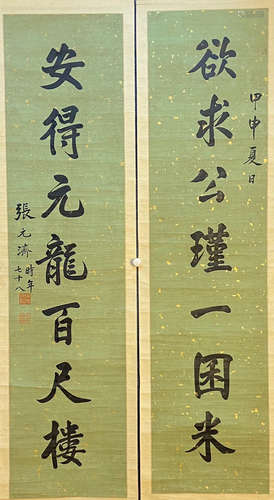 甲申夏日
欲求公瑾一囷米
安得元龍百尺樓
張元濟
時年七十八